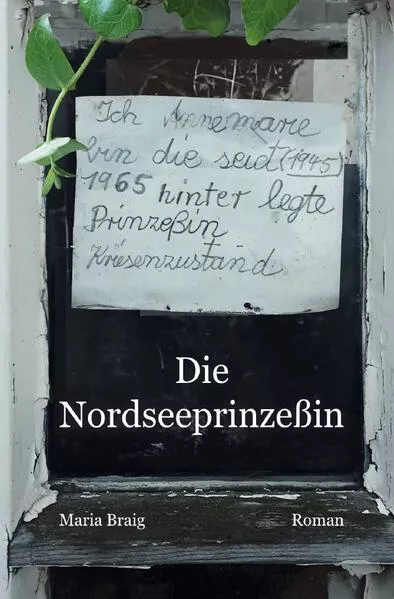 Ich Annemarie
bin die seid (1945)
1965 hinter legte
Prinzeßin
Kriesenzustand
Die
Nordseeprinzeßin
Maria Braig Roman